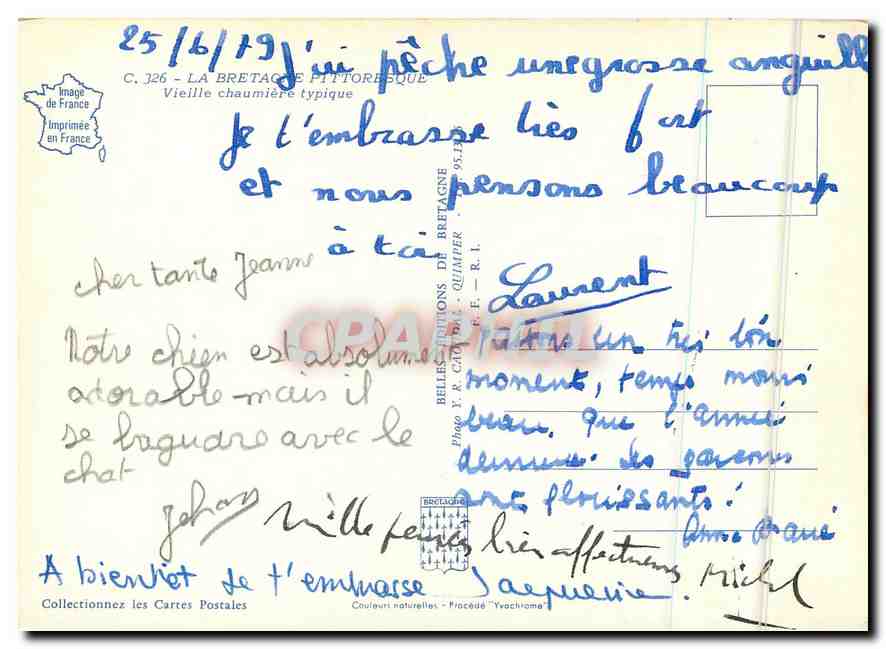 25/6/79 J'ai pêche une grosse anguille
C. 326 - LA BRETAGNE PITTORESQUE
Vieille chaumière typique
Image
de France
Imprimée
en France
Je t'embrasse très fort
et nous pensons beaucoup
à toi
Laurent
cher tante Jeanne
Notre chien est absolument
adorable mais il
se baguare avec le
chat
Jehan
BELLES EDITIONS DE BRETAGNE
Photo Y. R. CAOUDAL - QUIMPER - 95.13
F. F. - R. I.
CPARAMA
un très bon
moment, temps moins
beau, que l'année
dernière. Les garcons
sont florissants!
Anne
BRETAGNE
Mille pensées bien affectueuses Michel
A bientot je t'embrasse Jacqueline.
Collectionnez les Cartes Postales
Couleurs naturelles - Procédé "Yvochrome"